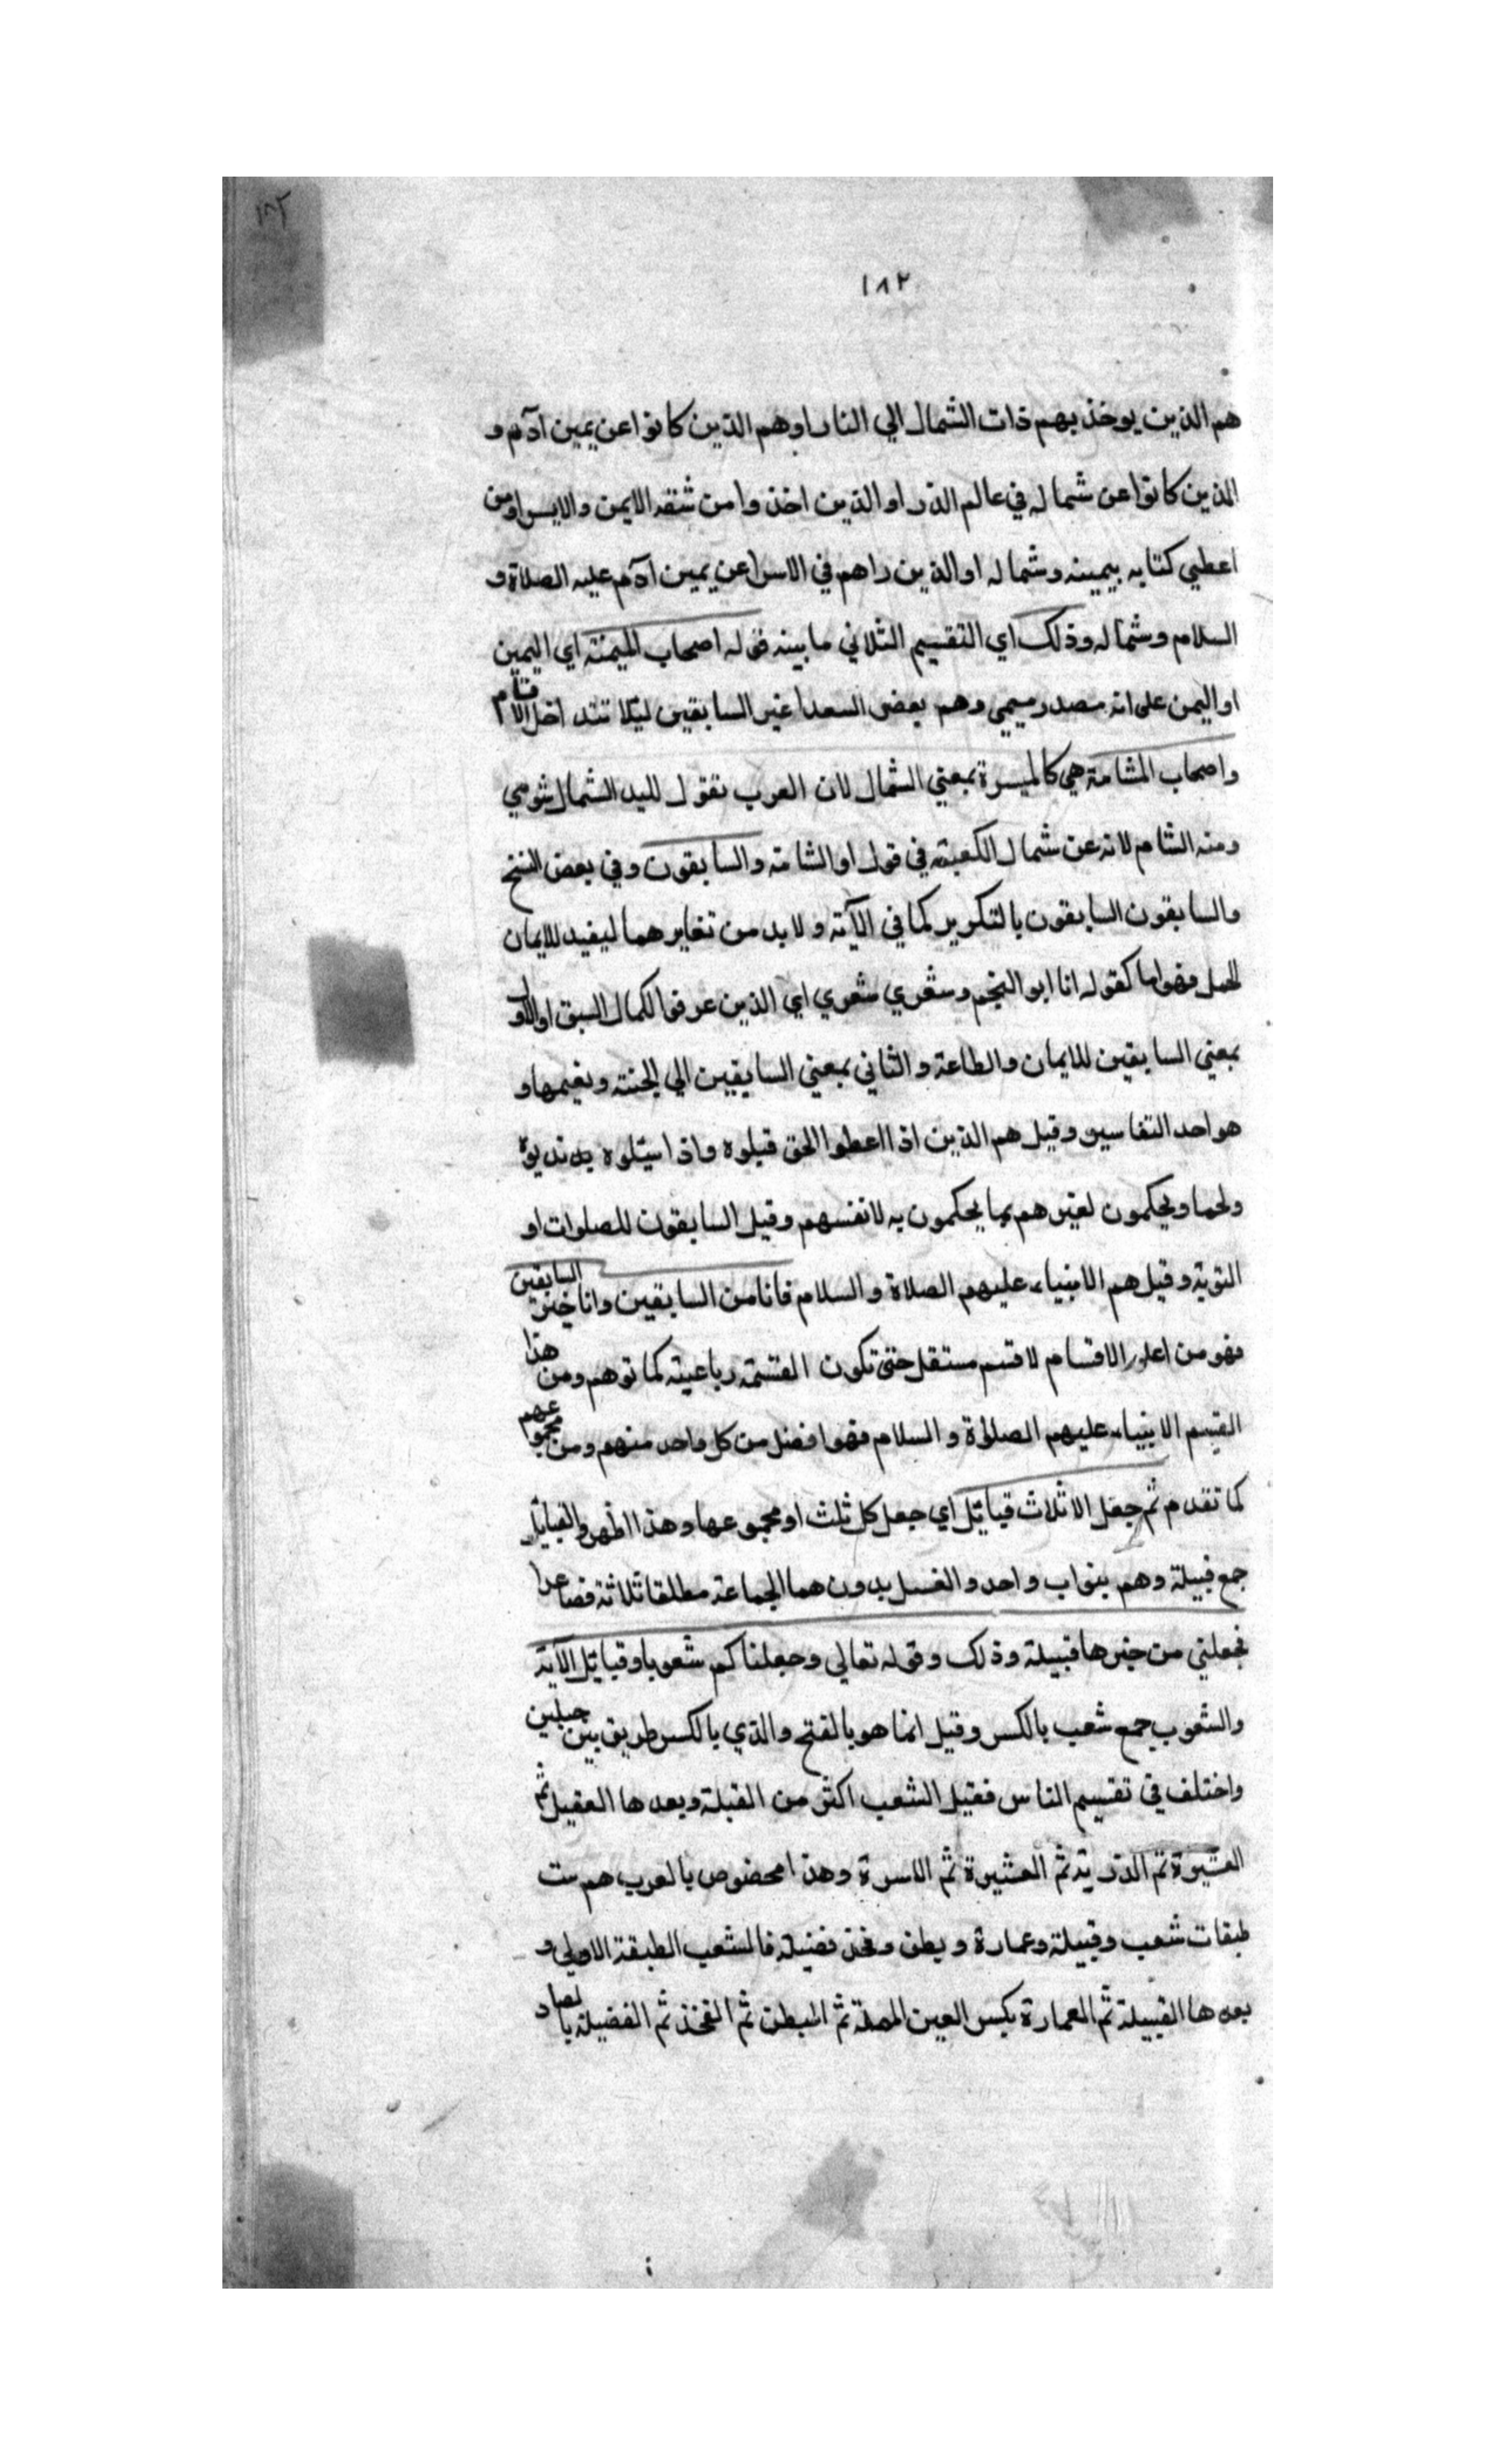 ١٨٢
١٨٢
هم الذين يوخذ بهم ذات الشمال الي النار اوهم الذين كانوا عن يمين ادم و
الذين كانوا عن شماله في عالم الذر او الذين اخذوا من شقه الايمن والايسر اومن
اعطي كتابه بيمينه وشماله او الذين راهم في الاسرا عن يمين ادم عليه الصلاة و
السلام وشماله وذلك اي التقسيم الثلاثي ما بينه قوله اصحاب الميمنة اي اليمين
او اليمن على انه مصدر ميمي وهم بعض السعدا غير السابقين ليلا تتداخل الاقسام
واصحاب المشامة هي كالميسرة بمعني الشمال لان العرب تقول لليد الشمال شومي
ومنه الشام لانه عن شمال الكعبة في قول او الشامة والسابقون وفي بعض النسخ
والسابقون السابقون بالتكرير كما في الآية ولا بد من تغايرهما ليفيد للايمان
الحمل فهو اما كقوله انا ابو النجم وشعري شعري اي الذين عرفوا لكمال السبق او الاول
بمعني السابقين للايمان والطاعة والثاني بمعني السابقين الي الجنة ونعيمها و
هو احد التفاسير وقيل هم الذين اذا اعطوا الحق قبلوه واذا سيلوه
ولحما ويحكمون لغيرهم بما يحكمون به لانفسهم وقيل السابقون للصلوات او
التوبة وقيل هم الانبياء عليهم الصلاة والسلام فانا من السابقين وانا خير السابقين
فهو من اعلى الاقسام لا قسم مستقل حتى تكون القسمة رباعية كما توهم ومن هذا
القسم الانبياء عليهم الصلوة والسلام فهو افضل من كل واحد منهم ومن مجموعهم
كما تقدم ثم جعل الاثلاث قبائل اي جعل كل ثلث او مجموعها وهذا اظهر والقبائل
جمع قبيلة وهم بنو اب واحد و بدون هما الجماعة مطلقا ثلاثة فصاعدا
فجعلني من خيرها قبيلة وذلك وقوله تعالي وجعلناكم شعوبا وقبائل الآية
والشعوب جمع شعب بالكسر وقيل انما هو بالفتح والذي بالكسر طريق بين جبلين
واختلف في تقسيم الناس فقيل الشعب اكثر من القبلة وبعدها العقيل ثم
العشيرة ثم الذرية ثم العشيرة ثم الاسرة وهذا محضوص بالعرب هم ست
طبقات شعب وقبيلة وعمارة وبطن وفخذ فضيلة فالشعب الطبقة الاولي و
بعدها القبيلة ثم العمارة بكسر العين المهملة ثم البطن ثم الفخذ ثم الفضيلة بالصاد